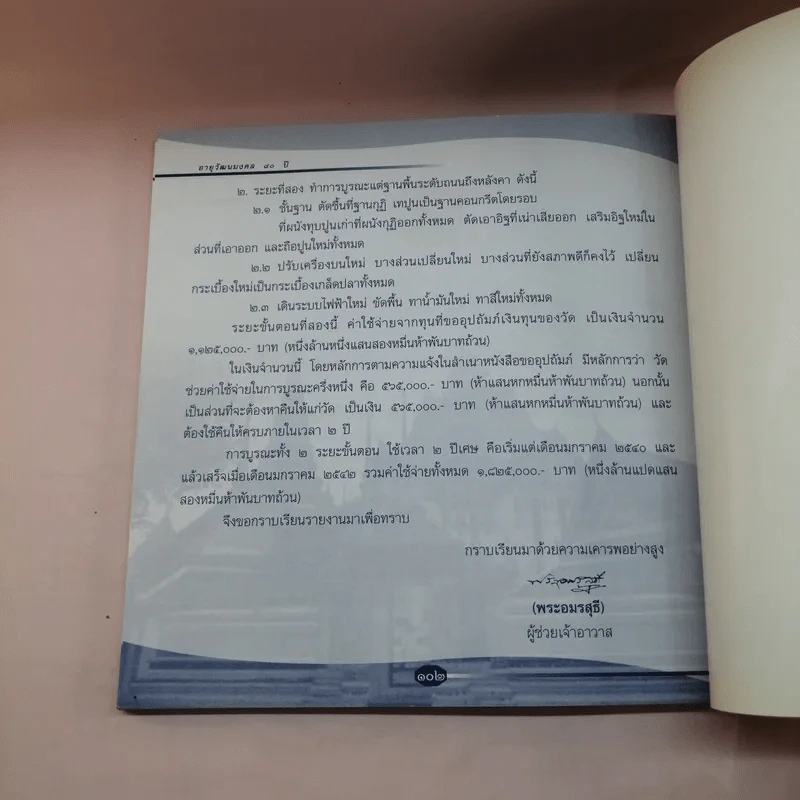 อายุวัฒนมงคล ๘๐ ปี
๒. ระยะที่สอง ทำการบูรณะแต่ฐานพื้นระดับถนนถึงหลังคา ดังนี้
๒.๑ ชั้นฐาน ตัดชื้นที่ฐานกุฏิ เทปูนเป็นฐานคอนกรีตโดยรอบ
ที่ผนังทุบปูนเก่าที่ผนังกุฏิออกทั้งหมด ตัดเอาอิฐที่เน่าเสียออก เสริมอิฐใหม่ใน
ส่วนที่เอาออก และถือปูนใหม่ทั้งหมด
๒.๒ ปรับเครื่องบนใหม่ บางส่วนเปลี่ยนใหม่ บางส่วนที่ยังสภาพดีก็คงไว้ เปลี่ยน
กระเบื้องใหม่เป็นกระเบื้องเกล็ดปลาทั้งหมด
๒.๓ เดินระบบไฟฟ้าใหม่ ขัดพื้น ทาน้ำมันใหม่ ทาสีใหม่ทั้งหมด
ระยะขั้นตอนที่สองนี้ ค่าใช้จ่ายจากทุนที่ขออุปถัมภ์เงินทุนของวัด เป็นเงินจำนวน
๑,๑๒๕,๐๐๐.- บาท (หนึ่งล้านหนึ่งแสนสองหมื่นห้าพันบาทถ้วน)
ในเงินจำนวนนี้ โดยหลักการตามความแจ้งในสำเนาหนังสือขออุปถัมภ์ มีหลักการว่า วัด
ช่วยค่าใช้จ่ายในการบูรณะครึ่งหนึ่ง คือ ๕๖๕,๐๐๐.- บาท (ห้าแสนหกหมื่นห้าพันบาทถ้วน) นอกนั้น
เป็นส่วนที่จะต้องหาคืนให้แก่วัด เป็นเงิน ๕๖๕,๐๐๐.- บาท (ห้าแสนหกหมื่นห้าพันบาทถ้วน) และ
ต้องใช้คืนให้ครบภายในเวลา ๒ ปี
การบูรณะทั้ง ๒ ระยะขั้นตอน ใช้เวลา ๒ ปีเศษ คือเริ่มแต่เดือนมกราคม ๒๕๔๐ และ
แล้วเสร็จเมื่อเดือนมกราคม ๒๕๔๒ รวมค่าใช้จ่ายทั้งหมด ๑,๘๒๕,๐๐๐.- บาท (หนึ่งล้านแปดแสน
สองหมื่นห้าพันบาทถ้วน)
จึงขอกราบเรียนรายงานมาเพื่อทราบ
กราบเรียนมาด้วยความเคารพอย่างสูง
(พระอมรสุธี)
ผู้ช่วยเจ้าอาวาส
๑๐๒